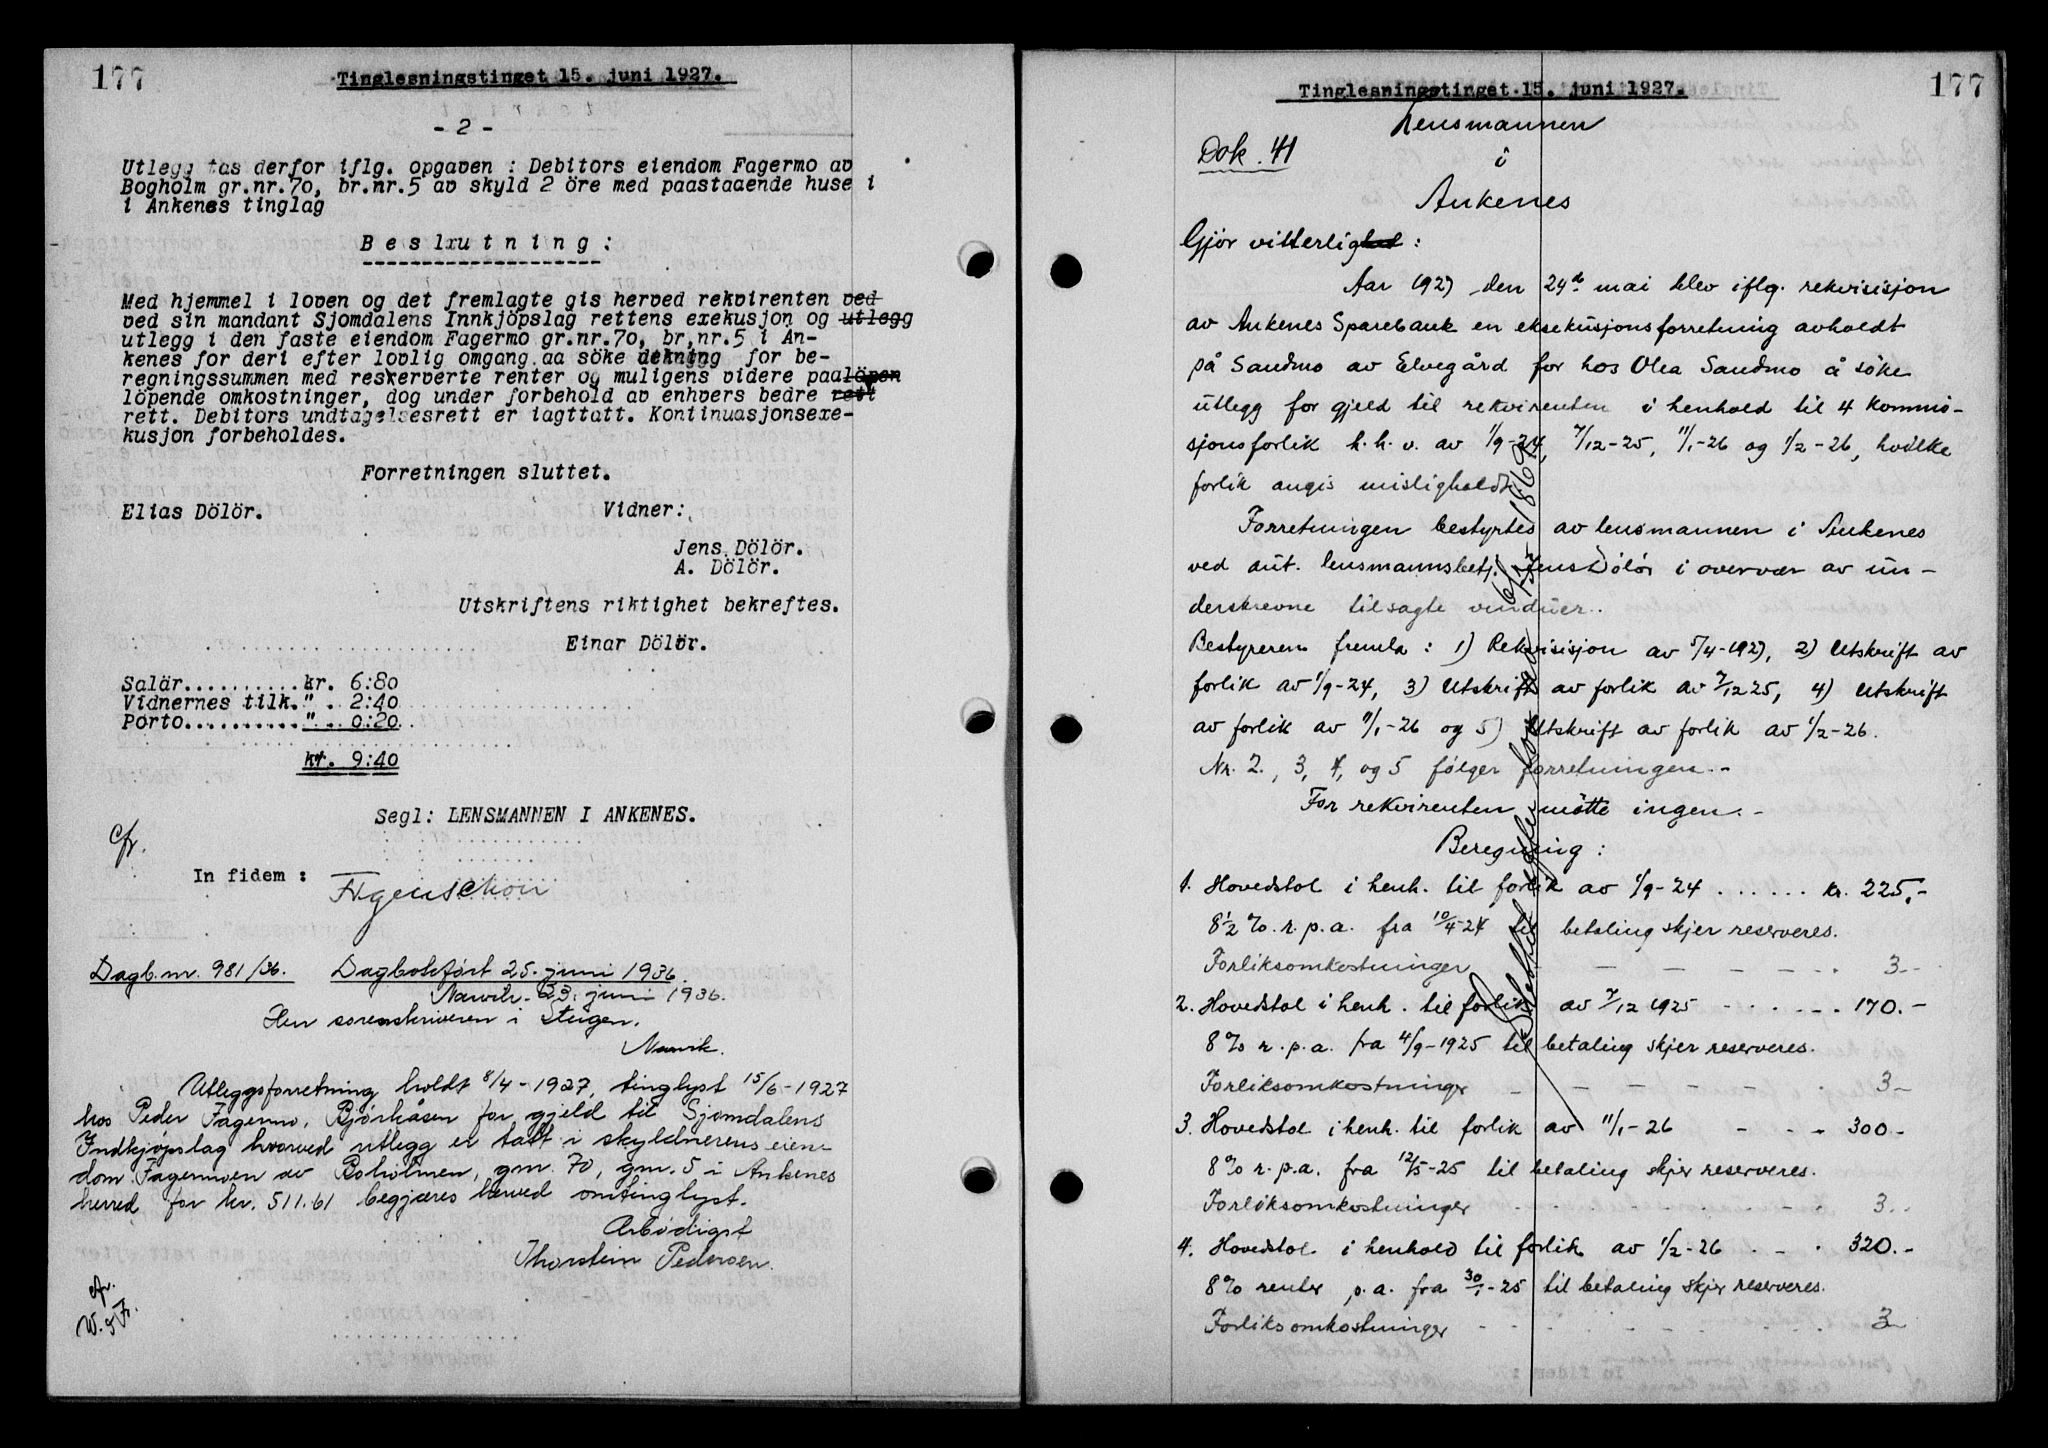 177
Tinglesningstinget 15. juni 1927.
- 2 -
Utlegg tas derfor iflg. opgaven : Debitors eiendom Fagermo av
Bogholm gr.nr.7o, br.nr.5 av skyld 2 öre med paastaaende huse i
i Ankenes tinglag
B e s l u t n i n g :
Med hjemmel i loven og det fremlagte gis herved rekvirenten ved
ved sin mandant Sjomdalens Innkjöpslag rettens exekusjon og utlegg
utlegg i den faste eiendom Fagermo gr.nr.7o, br,nr.5 i An-
kenes for deri efter lovlig omgang aa söke dekning for be-
regningssummen med reserverte renter og muligens videre paalöpen
löpende omkostninger, dog under forbehold av enhvers bedre rett
rett. Debitors undtagelsesrett er iagttatt. Kontinuasjonsexe-
kusjon forbeholdes.
Forretningen sluttet.
Elias Dölör. Vidner:
Jens Dölör.
A. Dölör.
Utskriftens riktighet bekreftes.
Einar Dölör.
Salär..........kr. 6:80
Vidnernes tilk." . 2:40
Porto.........."... 0:20
kr. 9:40
Segl: LENSMANNEN I ANKENES.
cfr.
In fidem :
Dagb.nr. 981/36. Dagbokført 25. juni 1936.
Narvik. 23. juni 1936.
Herr sorenskriveren i Steigen.
Narvik.
Utleggsforretning holdt 8/4-1927, tinglyst 15/6-1927
hos Peder Fagermo, Bjørkåsen for gjeld til Sjomdalens
Indkjøpslag hvorved utlegg er tatt i skyldnerens eien-
dom Fagermoen av Boholmen, gnr. 70, gnr. 5 i Ankenes
herred for kr. 511.61 begjæres herved omtinglyst.
Arbødigst
Thorstein Pedersen.
cfr.
177
Tinglesningstinget 15. juni 1927.
Lensmannen
Dok. 41 i
Ankenes
Gjör vitterlighed :
Aar 1927 den 24de mai blev iflg. rekvisisjon
av Ankenes Sparebank en eksekusjonsforretning avholdt
på Sandmo av Elvegård for hos Olea Sandmo å söke
utlegg for gjeld til rekvirenten i henhold til 4 kommis-
sjonsforlik h.h.v. av 1/9-24, 7/12-25, 11/1-26 og 1/2-26, hvilke
forlik angis misligholdt.
Forretningen bestyrtes av lensmannen i Ankenes
ved aut. lensmannsbetj. Jens Dölör i overvær av un-
derskrevne tilsagte vindner.
Bestyreren fremla : 1) Rekvisisjon av 5/4-1927, 2) Utskrift av
forlik av 1/9-24, 3) Utskrift av forlik av 7/12 25, 4) Utskrift
av forlik av 11/1-26 og 5) Utskrift av forlik av 1/2-26.
Nr. 2., 3, 4, og 5 følger forretningen.-
For rekvirenten mötte ingen.-
Beregning :
1. Hovedstol i henh. til forlik av 1/9-24 . . . . . . kr. 225.-
8 1/2 % r.p.a. fra 10/4-24 til betaling skjer reserveres.
Forliksomkostninger - - - - - - . 3.-
2. Hovedstol i henh. til forlik av 7/12 1925 - - . . . - 170.-
8 % r.p.a. fra 4/9-1925 til betaling skjer reserveres.
Forliksomkostninger - - - - - - . 3-
3. Hovedstol i henh. til forlik av 11/1-26 - - - 300-
8 % r.p.a. fra 12/5-25 til betaling skjer reserveres.
Forliksomkostninger - . - - . - - . 3..
4. Hovedstol i henhold til forlik av 1/2-26 . - . 320.-
8 % renter p.a. fra 30/1-25 til betaling skjer reserveres.
Forliksomkostninger - - - . - - . 3-